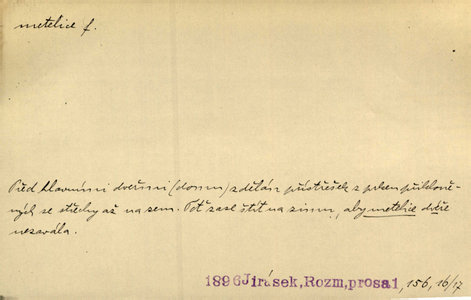 metelice f.
Před hlavními dveřmi (domu) zdělán přístřešek z prken přikloně-
ných se střechy až na zem. Toť zase štít na zimu, aby metelice dvéře
nezavála.
1896 Jirásek, Rozm, prosa 1, 156, 16/17